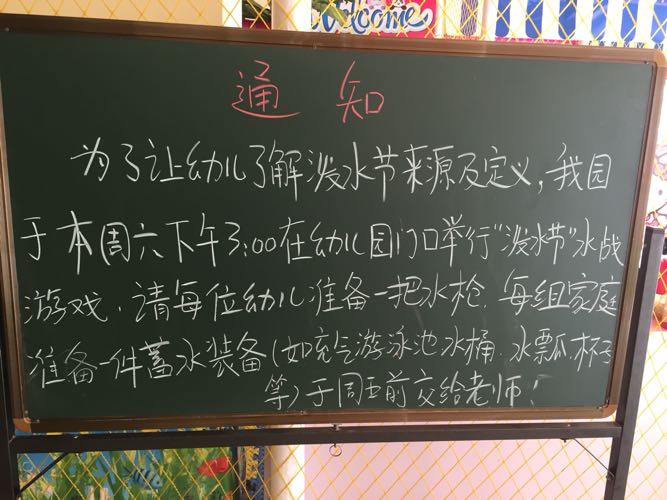 Welcome
通知
为了让幼儿了解泼水节来源及定义,我园
于本周六下午3:00在幼儿园门口举行"泼水节"水战
游戏.请每位幼儿准备一把水枪.每组家庭
准备一件蓄水装备(如充气游泳池水桶.水瓢.杯子
等)于周五前交给老师!